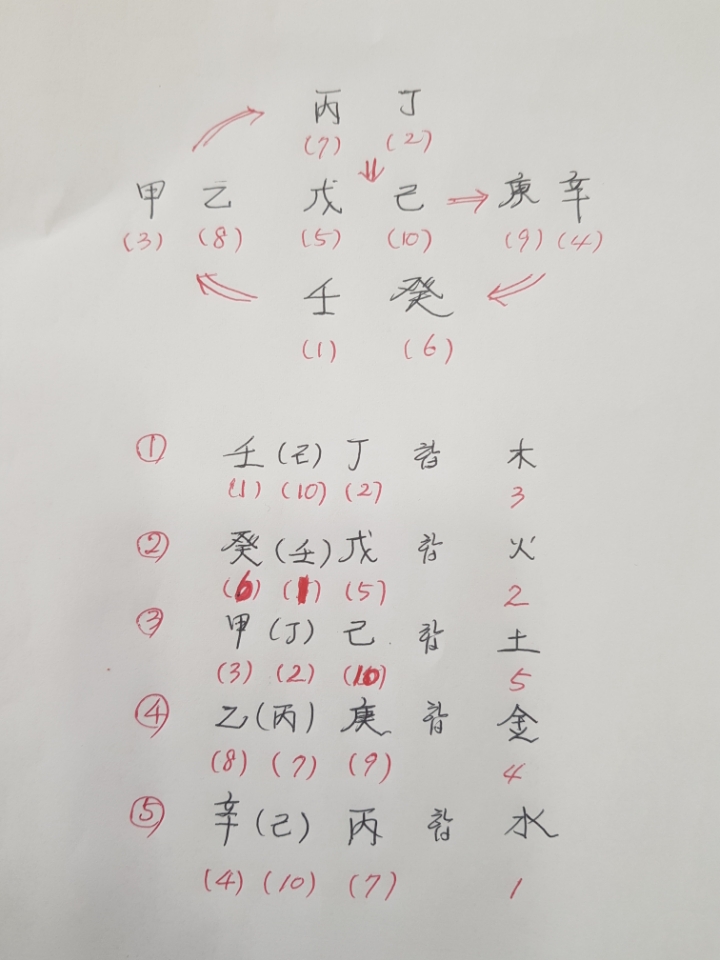 丙 丁
(7) (2)
甲 乙 戊 己 庚 辛
(3) (8) (5) (10) (9) (4)
壬 癸
(1) (6)
① 壬 (己) 丁 합 木
(1) (10) (2) 3
② 癸 (壬) 戊 합 火
(6) (1) (5) 2
③ 甲 (丁) 己 합 土
(3) (2) (10) 5
④ 乙 (丙) 庚 합 金
(8) (7) (9) 4
⑤ 辛 (己) 丙 합 水
(4) (10) (7) 1